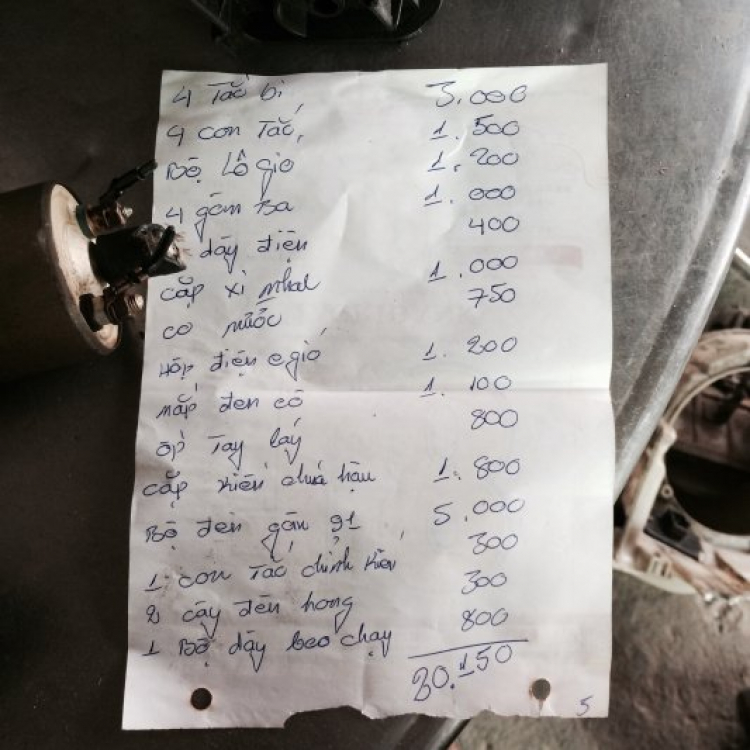 4 Tắc bi 3.000
4 con Tắc 1.500
Bộ Lô gio 1.200
4 gòm Ba 1.000
dây điện 400
cặp xi nhal 1.000
co nước 750
Hộp điện e gió 1.200
mắp đen cô 1.100
ốp Tay lấy 800
cặp kiến chiá hậu 1.800
Bộ đèn gầm 91 5.000
1 con Tắc chỉnh kiến 300
2 cây đèn hong 300
1 Bộ dây beo chạy 800
20.150
5